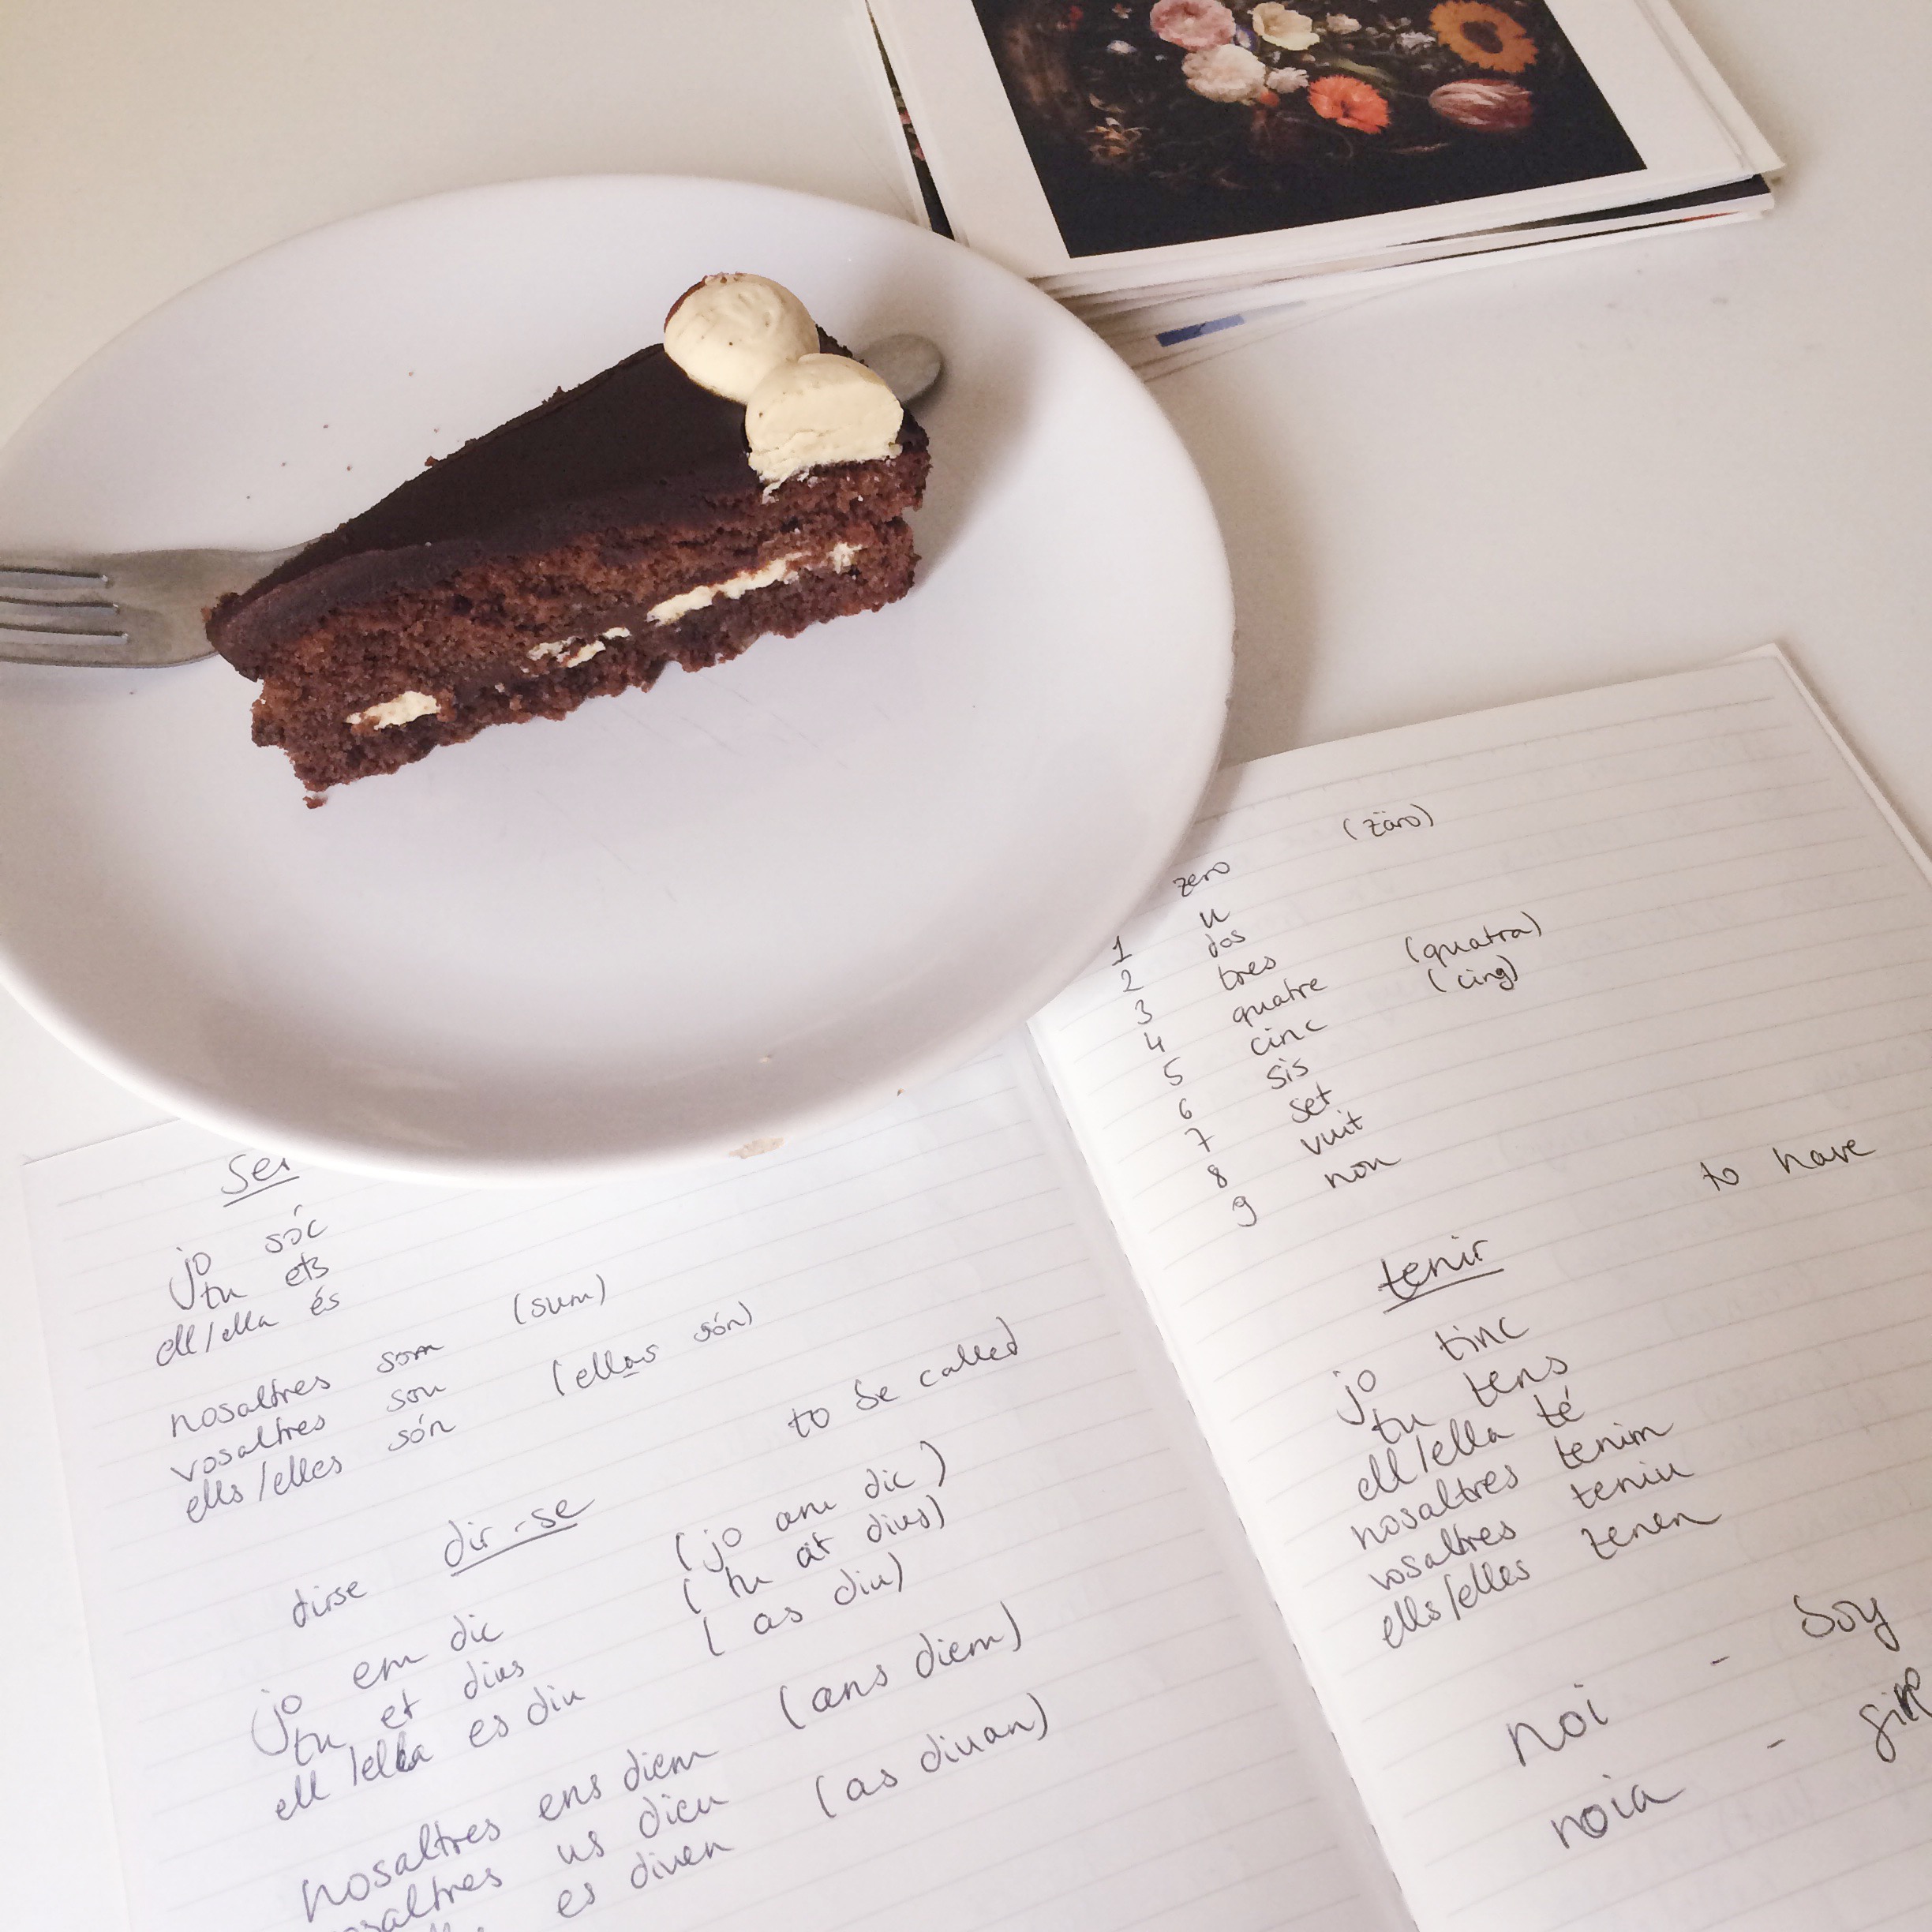 ser
jo sóc
tu ets
ell/ella és
nosaltres som (sum)
vosaltres sou
ells/elles són (ellas són)
dir-se to be called
dirse
jo em dic (jo am dic)
tu et dius (tu at dius)
ell/ella es diu (as diu)
nosaltres ens diem (ans diem)
us dieu
es diuen (as diuan)
zero (zäro)
1 u
2 dos
3 tres
4 quatre (quatra)
5 cinc (cing)
6 sis
7 set
8 vuit
9 nou
tenir to have
jo tinc
tu tens
ell/ella té
nosaltres tenim
vosaltres teniu
ells/elles tenen
noi - boy
noia -